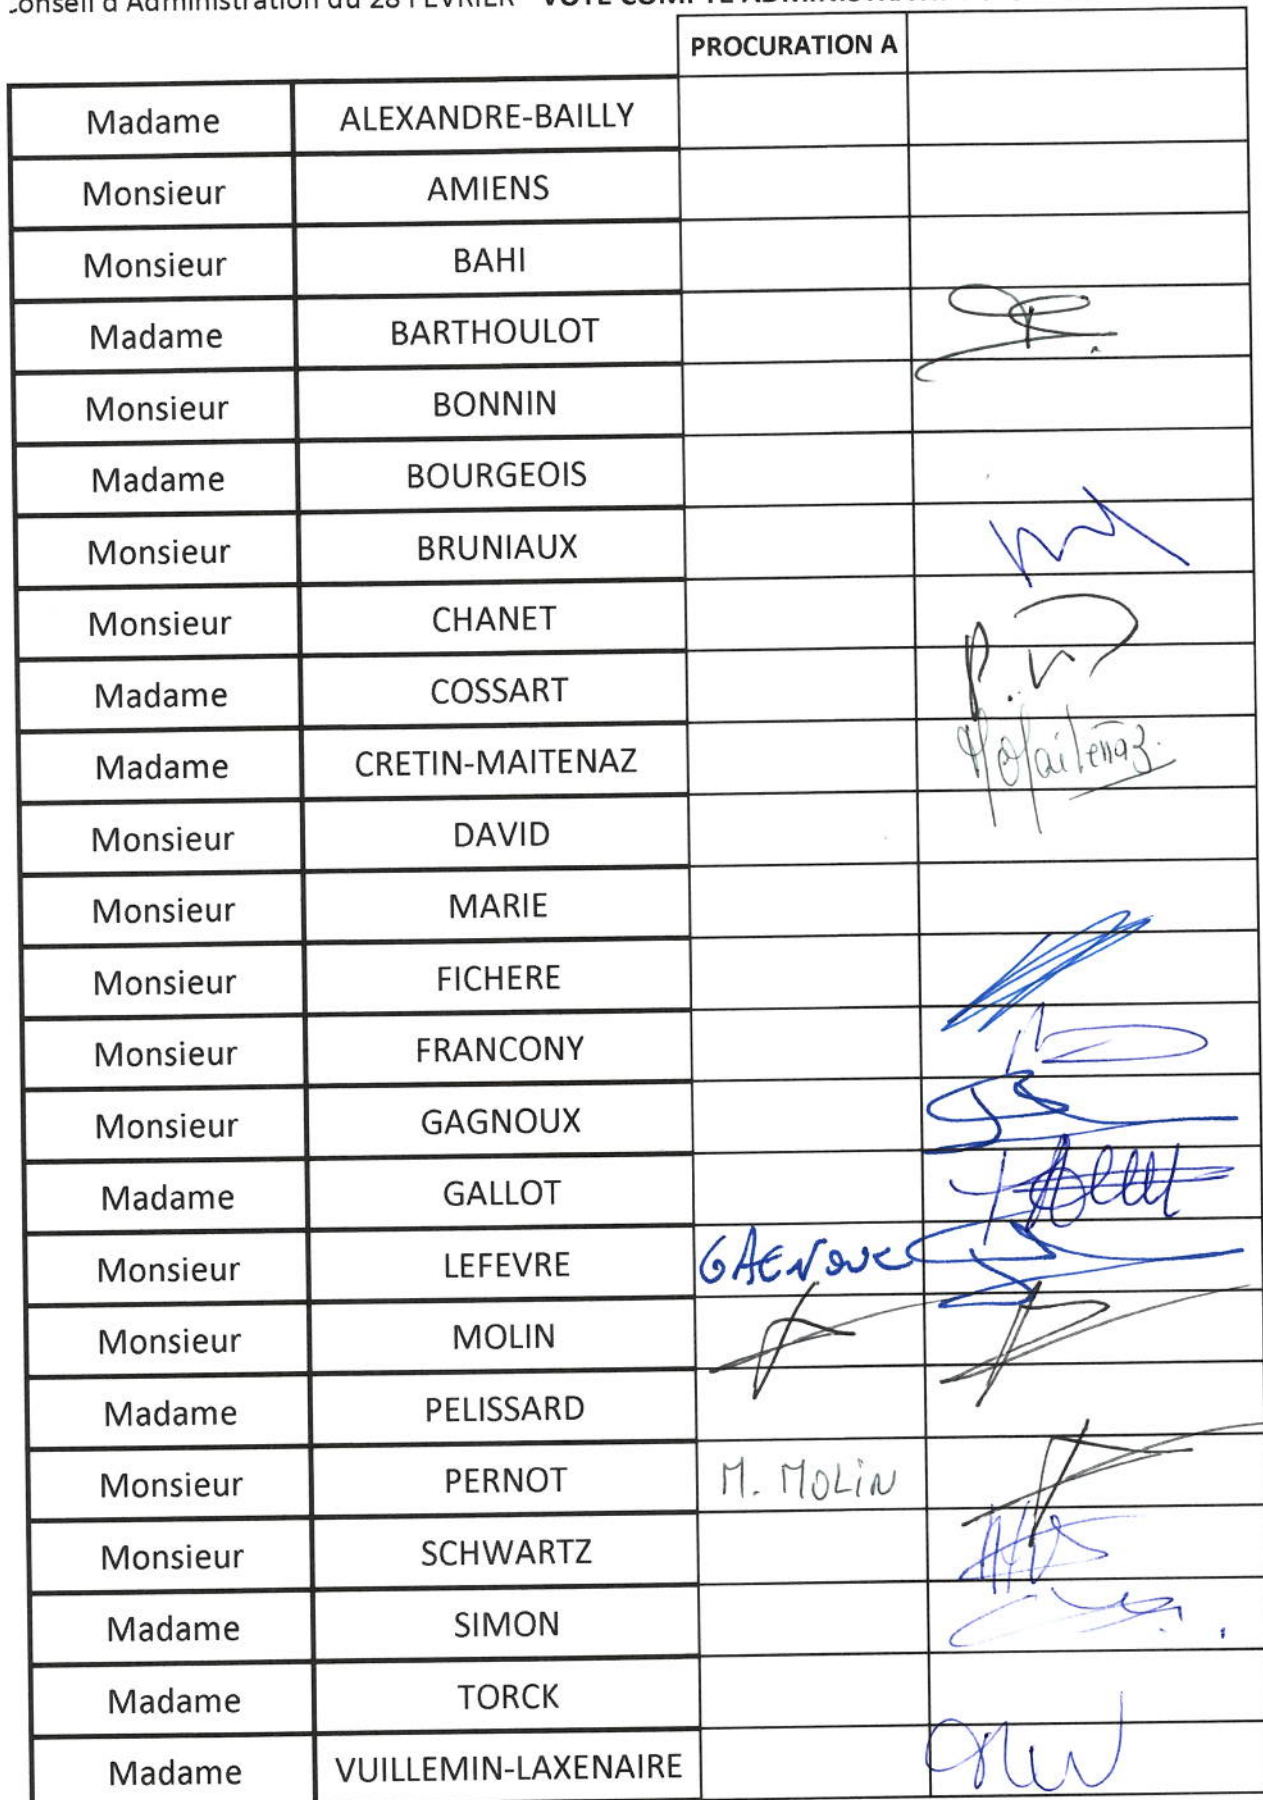 Conseil d'Administration du 28 FEVRIER - VOTE COMPTE
PROCURATION A
Madame ALEXANDRE-BAILLY
Monsieur AMIENS
Monsieur BAHI
Madame BARTHOULOT
Monsieur BONNIN
Madame BOURGEOIS
Monsieur BRUNIAUX
Monsieur CHANET
Madame COSSART
Madame CRETIN-MAITENAZ
Monsieur DAVID
Monsieur MARIE
Monsieur FICHERE
Monsieur FRANCONY
Monsieur GAGNOUX
Madame GALLOT
Monsieur LEFEVRE
Monsieur MOLIN
Madame PELISSARD
Monsieur PERNOT M. MOLIN
Monsieur SCHWARTZ
Madame SIMON
Madame TORCK
Madame VUILLEMIN-LAXENAIRE